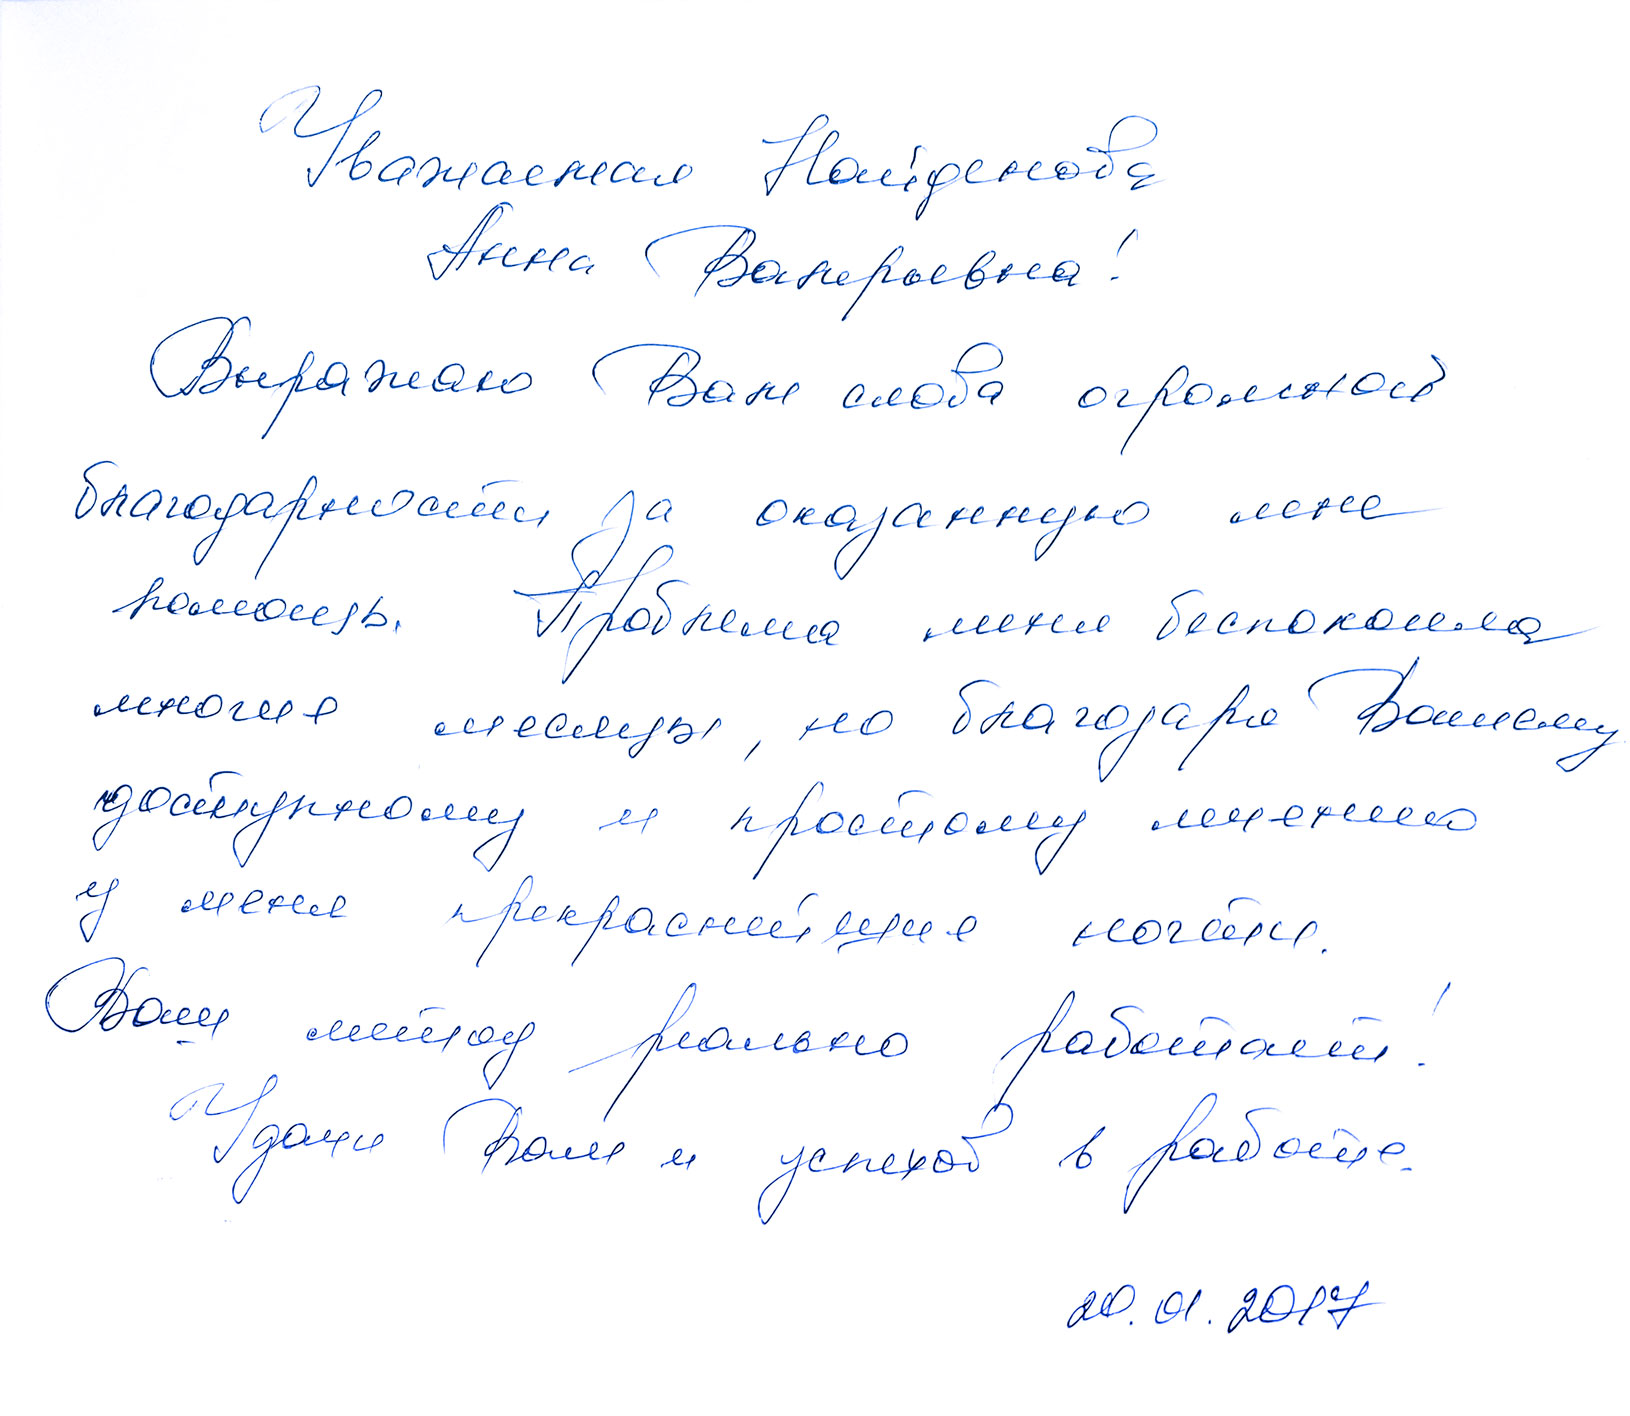 Уважаемая Найденова
Анна Валерьевна!
Выражаю Вам слова огромной
благодарности за оказанную мне
помощь. Проблема меня беспокоила
многие месяцы, но благодаря Вашему
доступному и простому лечению
у меня прекраснейшие ногти.
Ваш метод реально работает!
Удачи Вам и успехов в работе.
20.01.2017